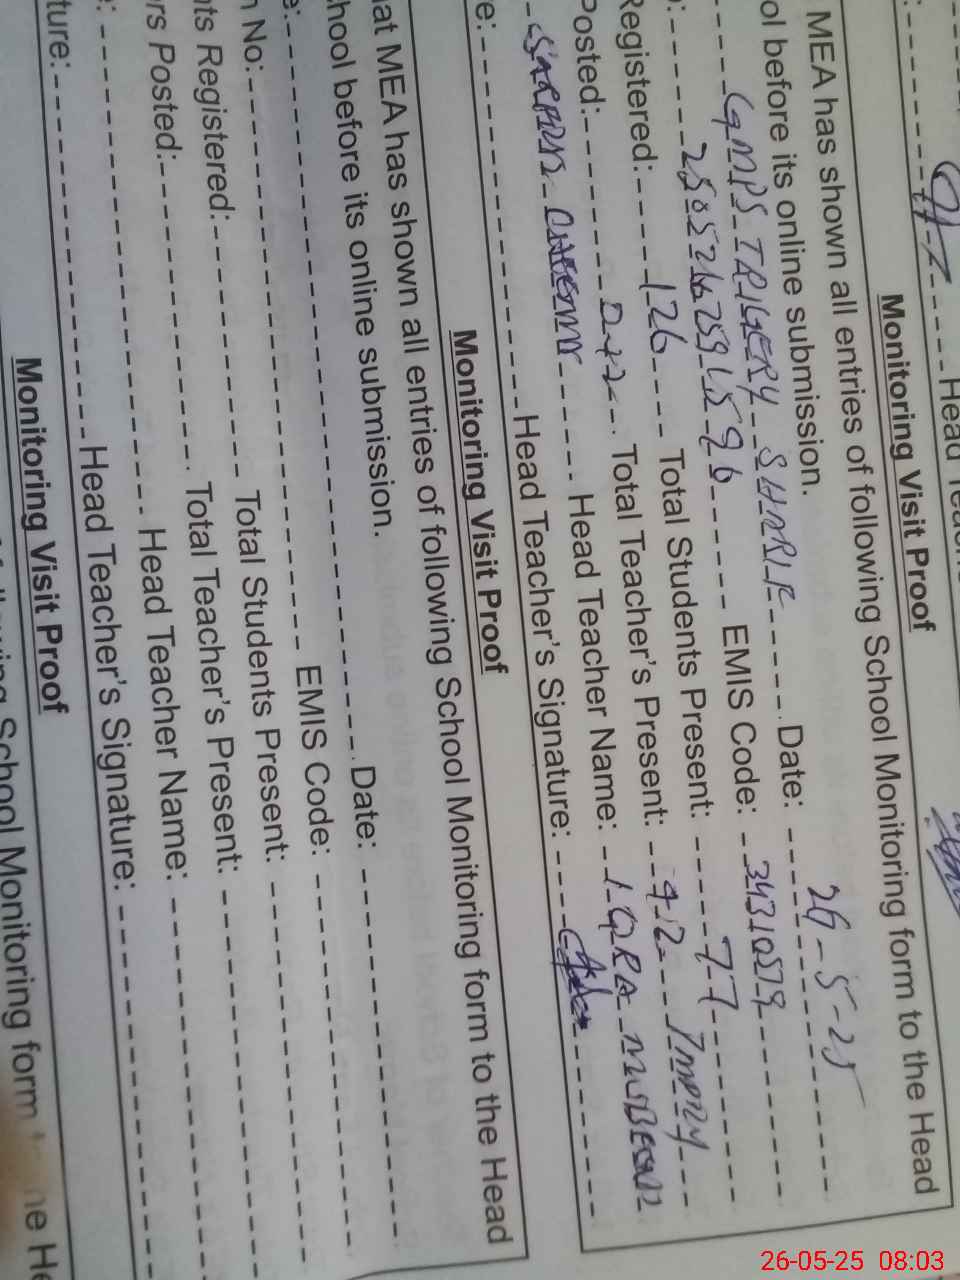 Head
Monitoring Visit Proof
MEA has shown all entries of following School Monitoring form to the Head
ol before its online submission.
GMPS TRIGERY SHARIF Date: 26-5-25
EMIS Code: 34310579
Registered: 126 Total Students Present: 77
Posted: 2+2 Total Teacher's Present:
Head Teacher Name: IQRA
e: Head Teacher's Signature:
Monitoring Visit Proof
at MEA has shown all entries of following School Monitoring form to the Head
hool before its online submission.
Date:
e: EMIS Code:
n No: Total Students Present:
nts Registered: Total Teacher's Present:
ers Posted: Head Teacher Name:
ture: Head Teacher's Signature:
Monitoring Visit Proof
School Monitoring form
26-05-25 08:03